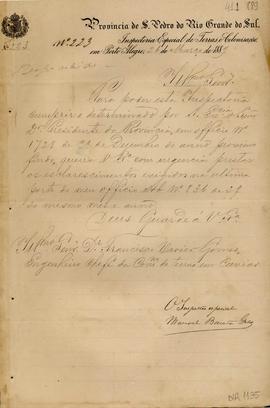 Provincia de S. Pedro do Rio Grande do Sul.
Inspectoria Especial de Terras e Colonisação,
em Porto Alegre, 2 de Março de 188
Nº 223
Illmo Senr.
Para poder esta Inspectoria
cumprir o determinado por S. Exa. o Senr.
Presidente da Provincia, em officio Nº
1724 de 22 de Dezembro do anno proximo
findo, queira V. Sa. com urgencia prestar
os esclarecimentos exigidos na ultima
parte do meu officio Nº 236 de 29
do mesmo mez e anno.
Deus Guarde a V. Sa.
Illmo Senr. Dr. Francisco Xavier
Engenheiro Chefe da Comm. de terras em Caxias
O Inspector especial
Manoel
DIR 1135